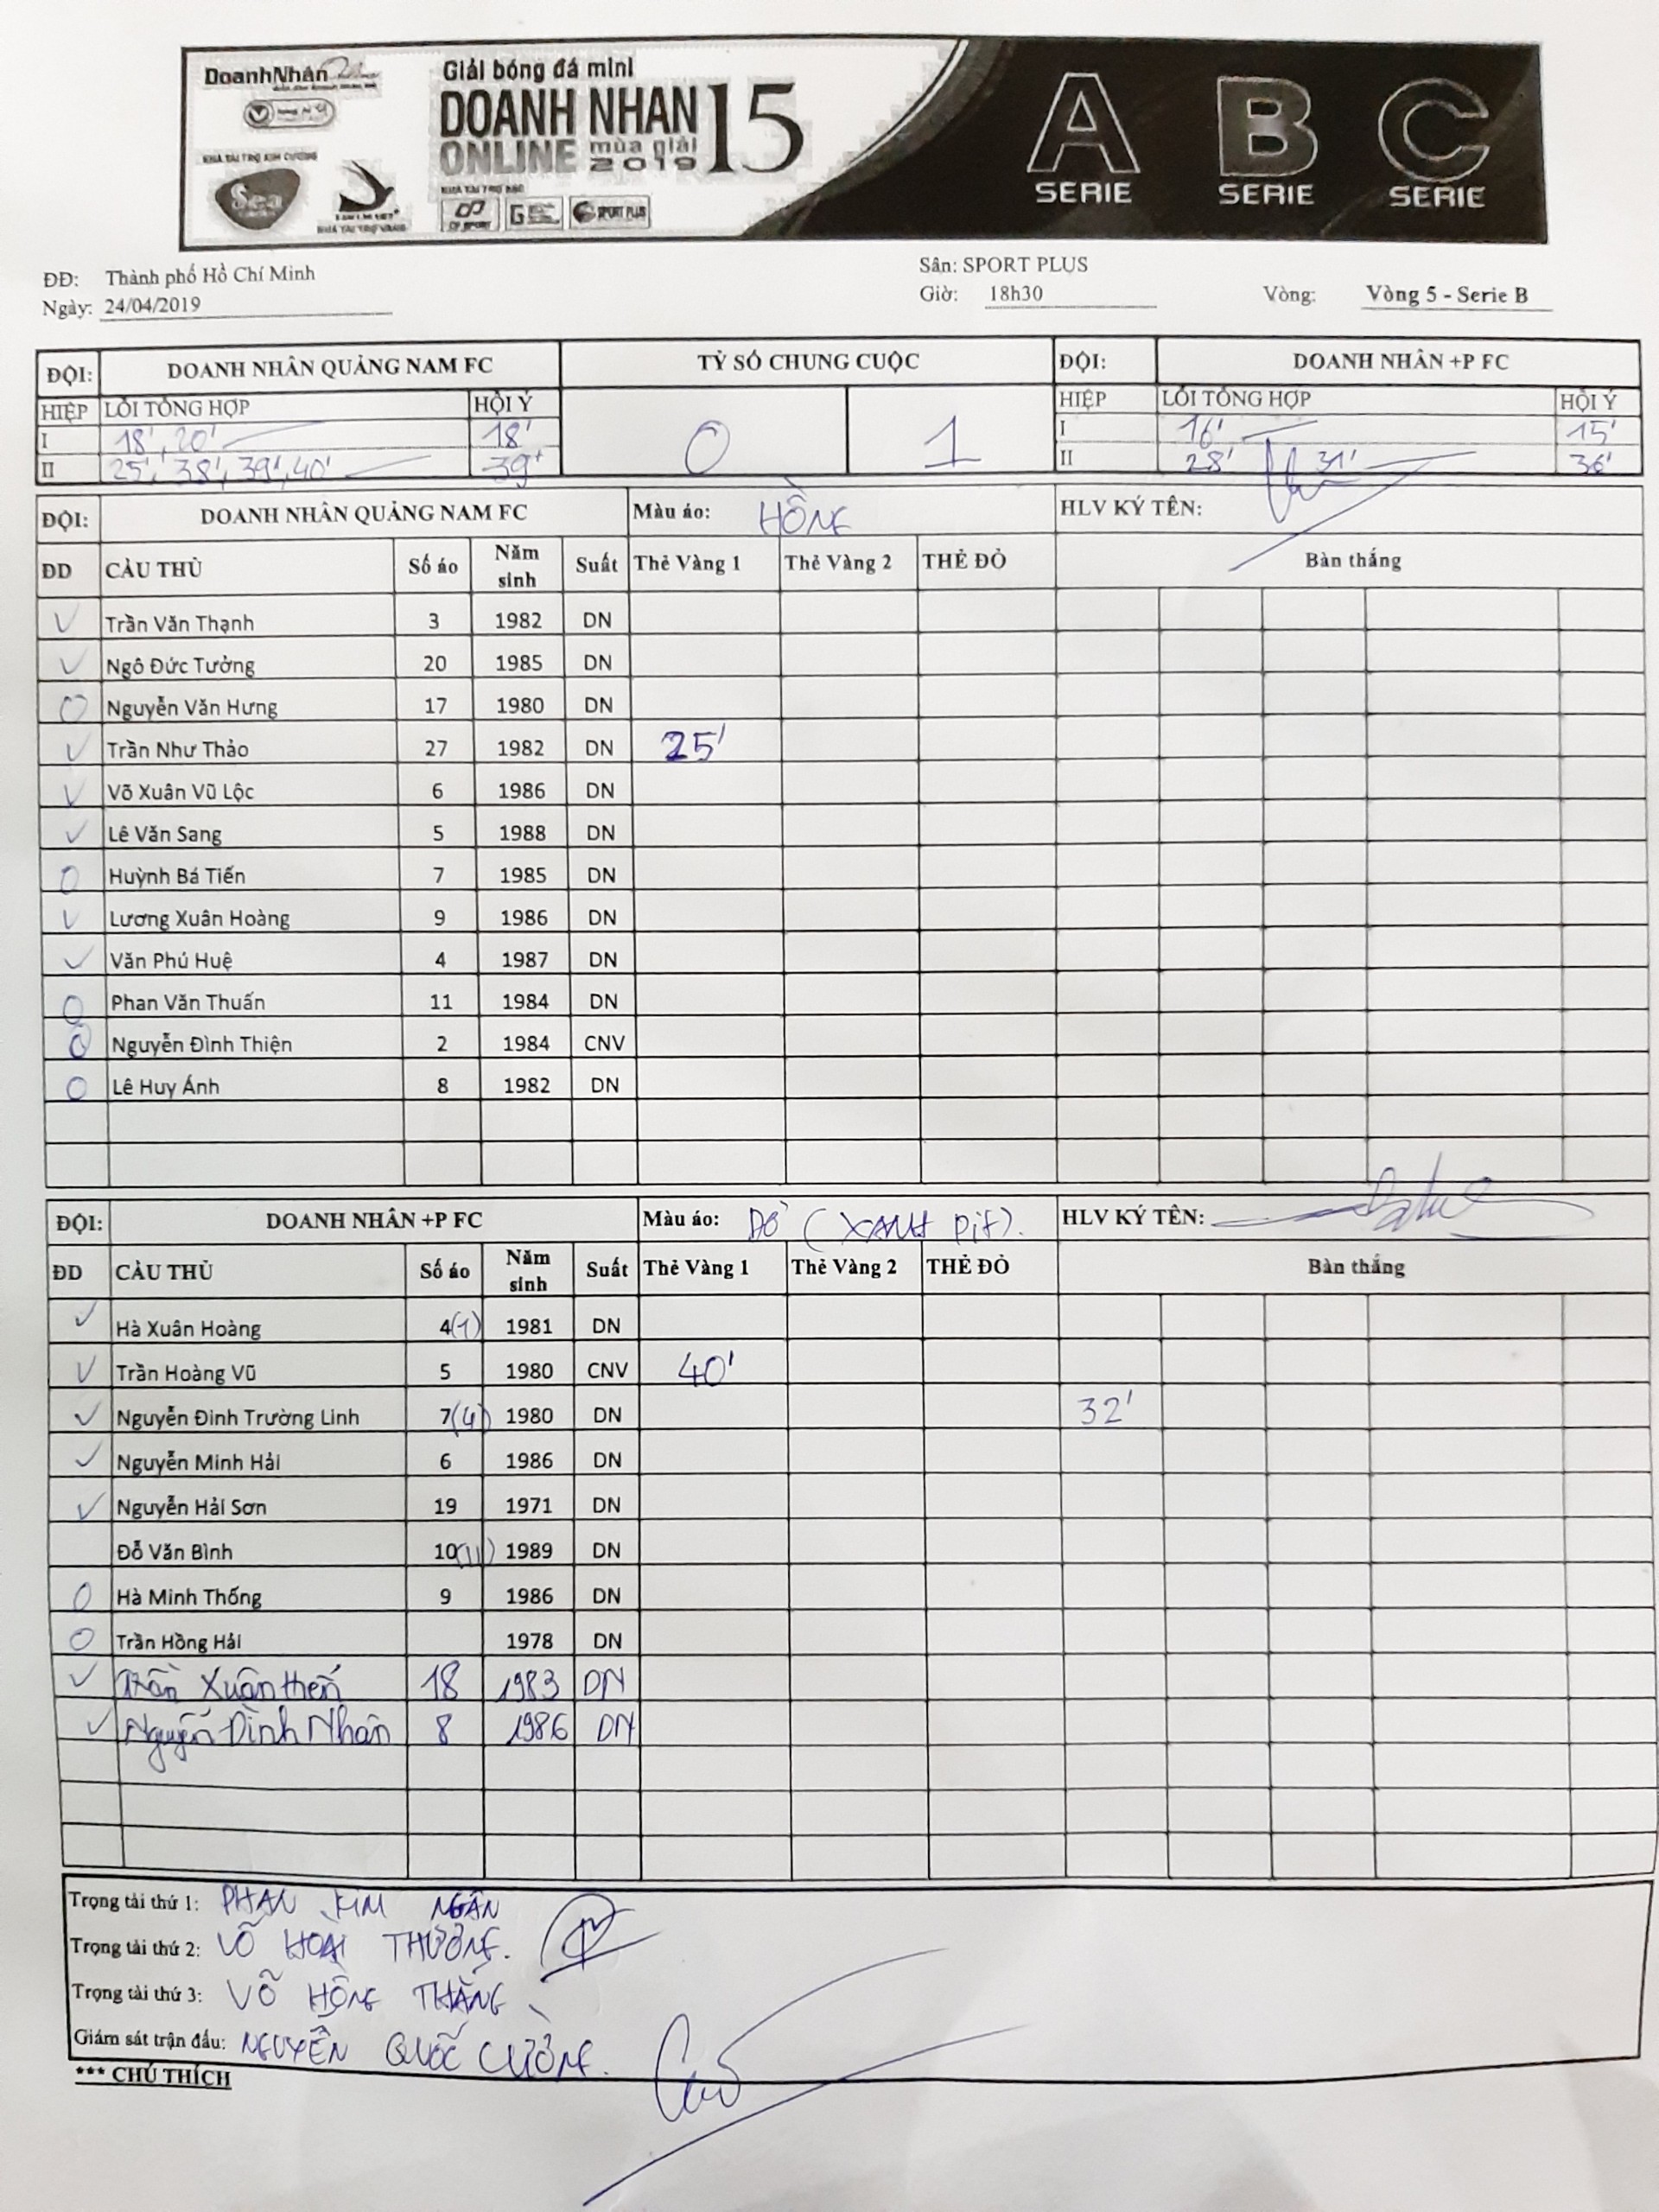 DoanhNhân
Giải bóng đá mini
DOANH NHAN 15
ONLINE mùa giải 2019
NHÀ TÀI TRỢ KIM CƯƠNG
Sea
NHÀ TÀI TRỢ VÀNG
NHÀ TÀI TRỢ BẠC
CP SPORT
SPORT PLUS
A B C
SERIE SERIE SERIE
ĐĐ: Thành phố Hồ Chí Minh Sân: SPORT PLUS
Ngày: 24/04/2019 Giờ: 18h30 Vòng: Vòng 5 - Serie B
ĐỘI: DOANH NHÂN QUẢNG NAM FC TỶ SỐ CHUNG CUỘC ĐỘI: DOANH NHÂN +P FC
HIỆP LỖI TỔNG HỢP HỘI Ý 0 1 HIỆP LỖI TỔNG HỢP HỘI Ý
I 18', 20' 18' I 16' 15'
II 25', 38', 39', 40' 39' II 28' 31' 36'
ĐỘI: DOANH NHÂN QUẢNG NAM FC Màu áo: HỒNG HLV KÝ TÊN:
ĐD CẦU THỦ Số áo Năm sinh Suất Thẻ Vàng 1 Thẻ Vàng 2 THẺ ĐỎ Bàn thắng
Trần Văn Thạnh 3 1982 DN
Ngô Đức Tưởng 20 1985 DN
Nguyễn Văn Hưng 17 1980 DN
Trần Như Thảo 27 1982 DN 25'
Võ Xuân Vũ Lộc 6 1986 DN
Lê Văn Sang 5 1988 DN
Huỳnh Bá Tiến 7 1985 DN
Lương Xuân Hoàng 9 1986 DN
Văn Phú Huệ 4 1987 DN
Phan Văn Thuấn 11 1984 DN
Nguyễn Đình Thiện 2 1984 CNV
Lê Huy Ánh 8 1982 DN
ĐỘI: DOANH NHÂN +P FC Màu áo: ĐỎ (XANH pit). HLV KÝ TÊN:
ĐD CẦU THỦ Số áo Năm sinh Suất Thẻ Vàng 1 Thẻ Vàng 2 THẺ ĐỎ Bàn thắng
Hà Xuân Hoàng 4(1) 1981 DN
Trần Hoàng Vũ 5 1980 CNV 40'
Nguyễn Đình Trường Linh 7(4) 1980 DN 32'
Nguyễn Minh Hải 6 1986 DN
Nguyễn Hải Sơn 19 1971 DN
Đỗ Văn Bình 10(11) 1989 DN
Hà Minh Thống 9 1986 DN
Trần Hồng Hải 1978 DN
Trần Xuân Hiến 18 1983 DN
Nguyễn Đình Nhân 8 1986 DN
Trọng tài thứ 1: PHAN KIM NGÂN
Trọng tài thứ 2: VÕ HOÀI THƯƠNG.
Trọng tài thứ 3: VÕ HỒNG THẮNG
Giám sát trận đấu: NGUYỄN QUỐC CƯỜNG.
*** CHÚ THÍCH